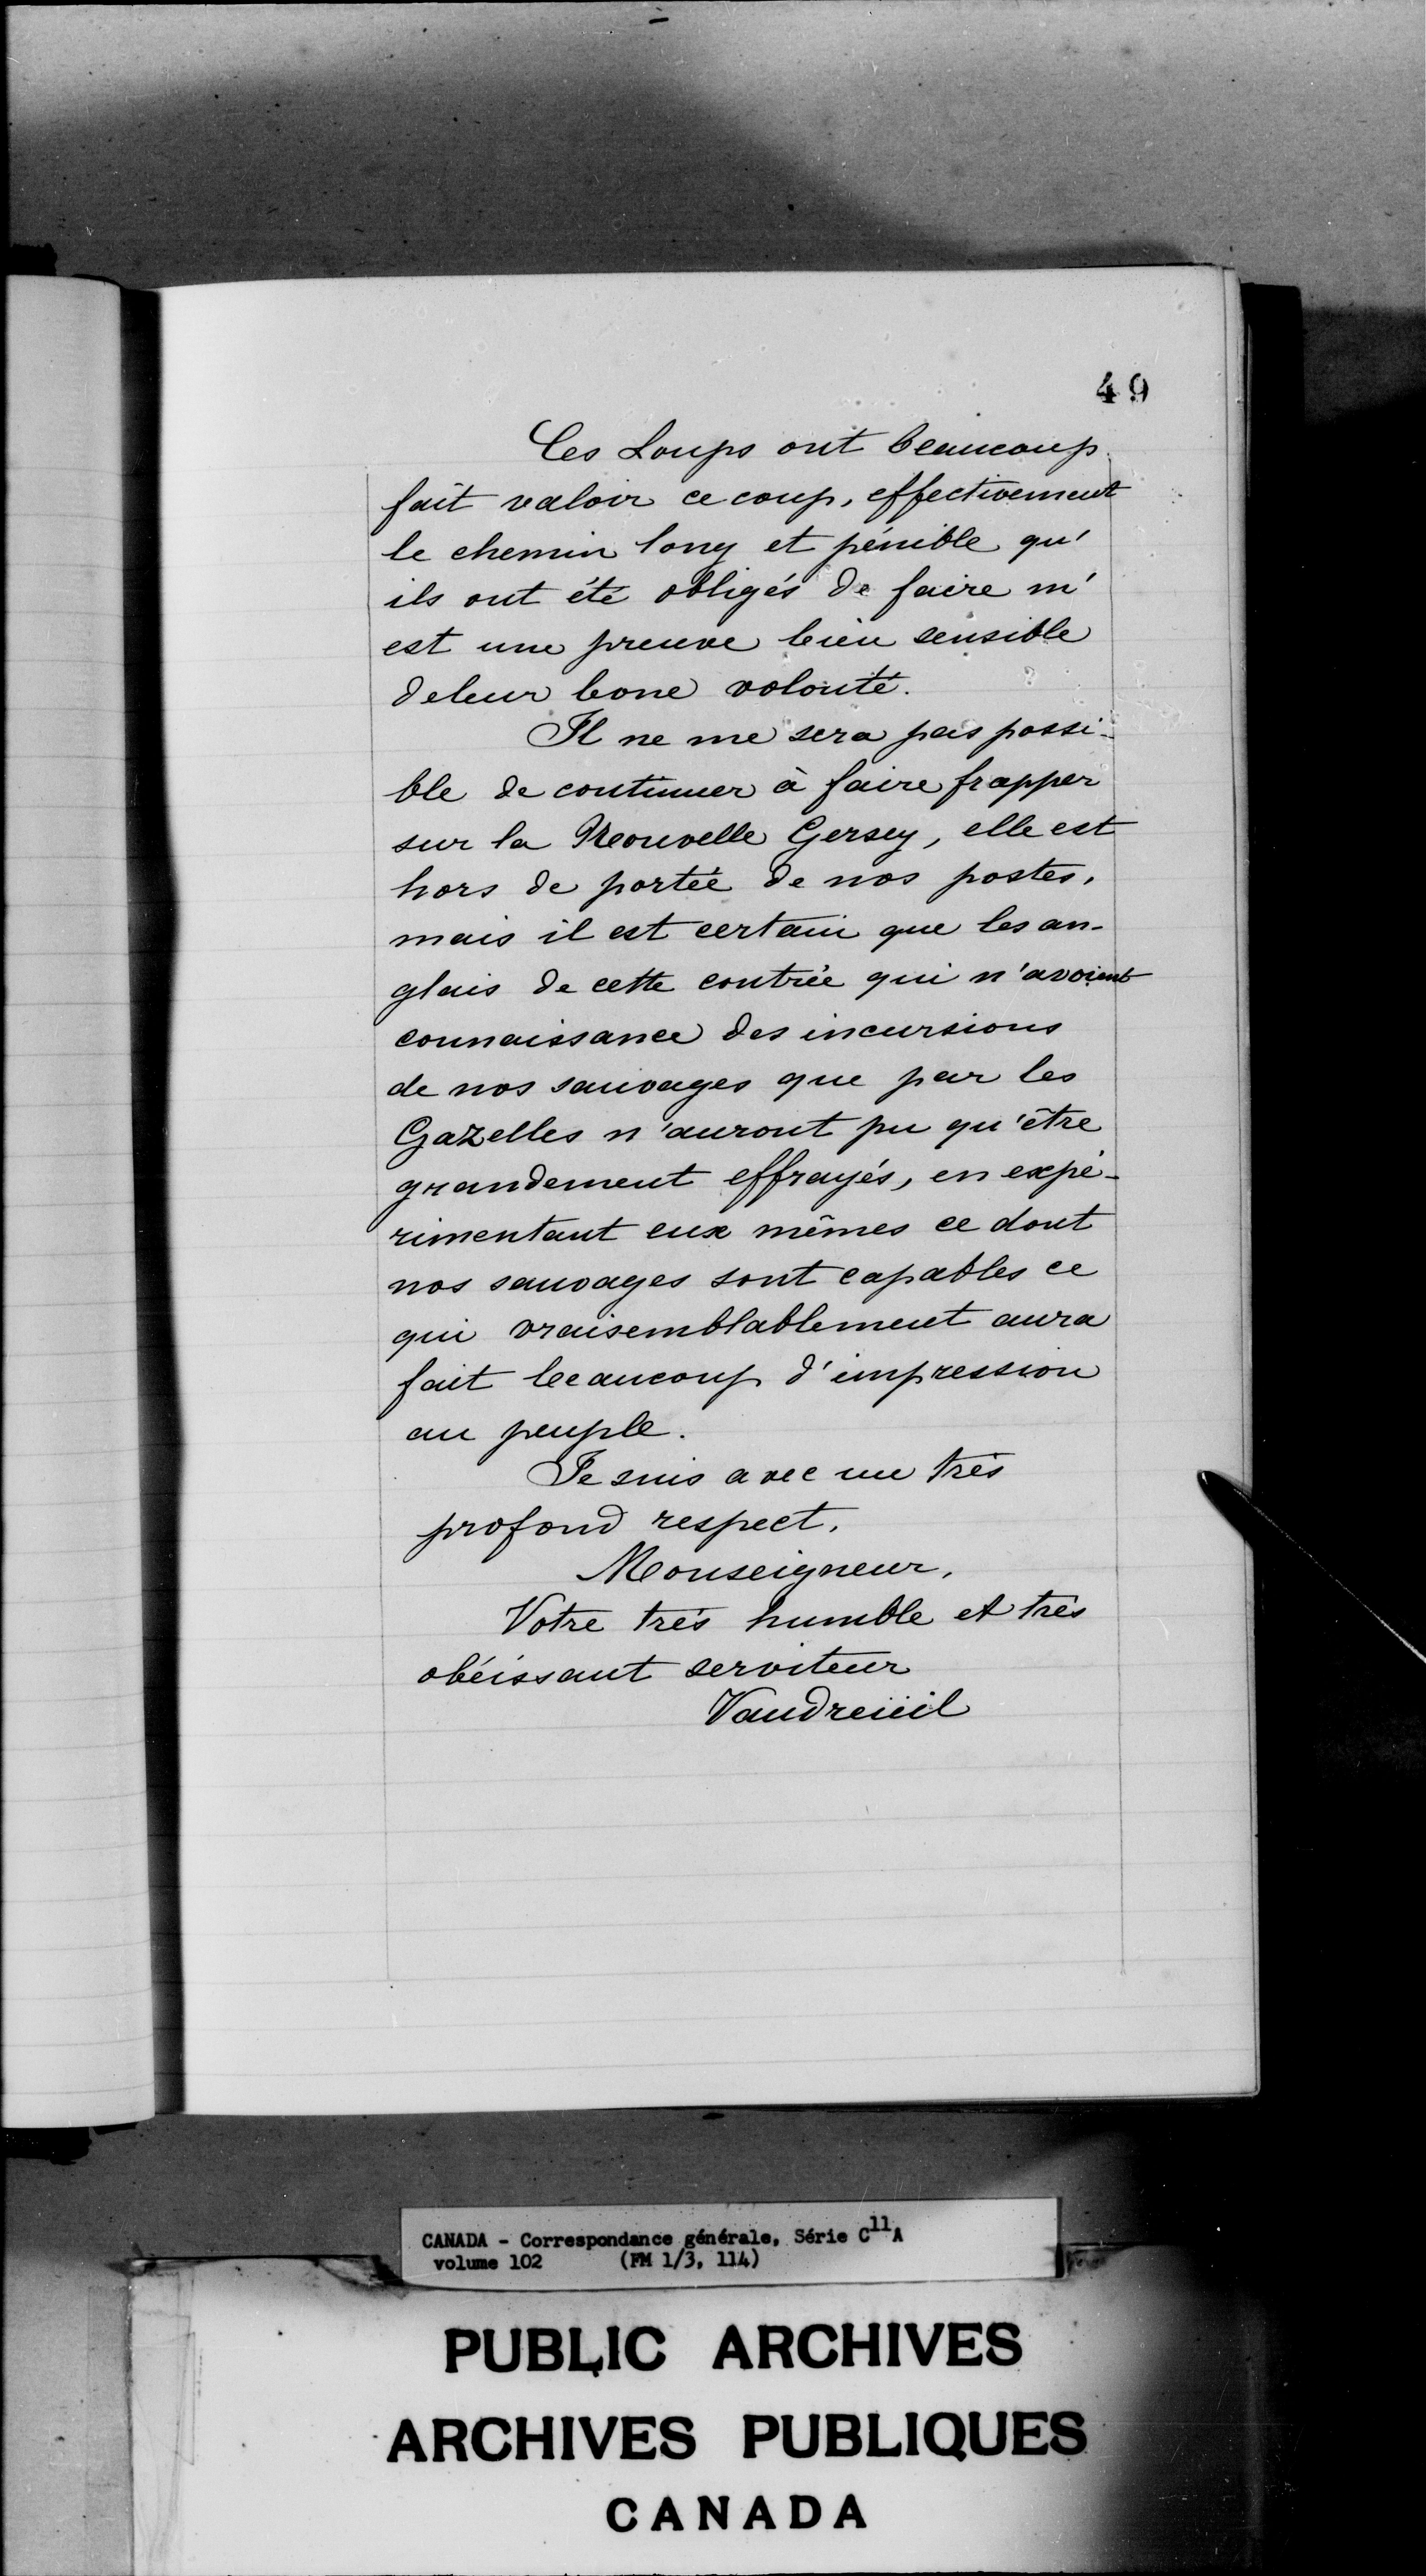 49
Ces Loups ont beaucoup
fait valoir ce coup, effectivement
le chemin long et pénible qu'
ils ont été obligés de faire m'
est une preuve bien sensible
deleur bone volonté.
Il ne me sera pas possi-
ble de continuer à faire frapper
sur la Nouvelle Gersey, elle est
hors de portée de nos postes,
mais il est certain que les an-
glais de cette contrée qui n'avoient
connaissance des incursions
de nos sauvages que par les
Gazelles n'auront pu qu'être
grandement effrayés, en expé-
rimentant eux mêmes ce dont
nos sauvages sont capables ce
qui vraisemblablement aura
fait beaucoup d'impression
au peuple.
Je suis avec un très
profond respect,
Monseigneur,
Votre très humble et très
obéissant serviteur
Vaudreüil
CANADA - Correspondance générale, Série C11A
volume 102 (FM 1/3, 114)
PUBLIC ARCHIVES
ARCHIVES PUBLIQUES
CANADA